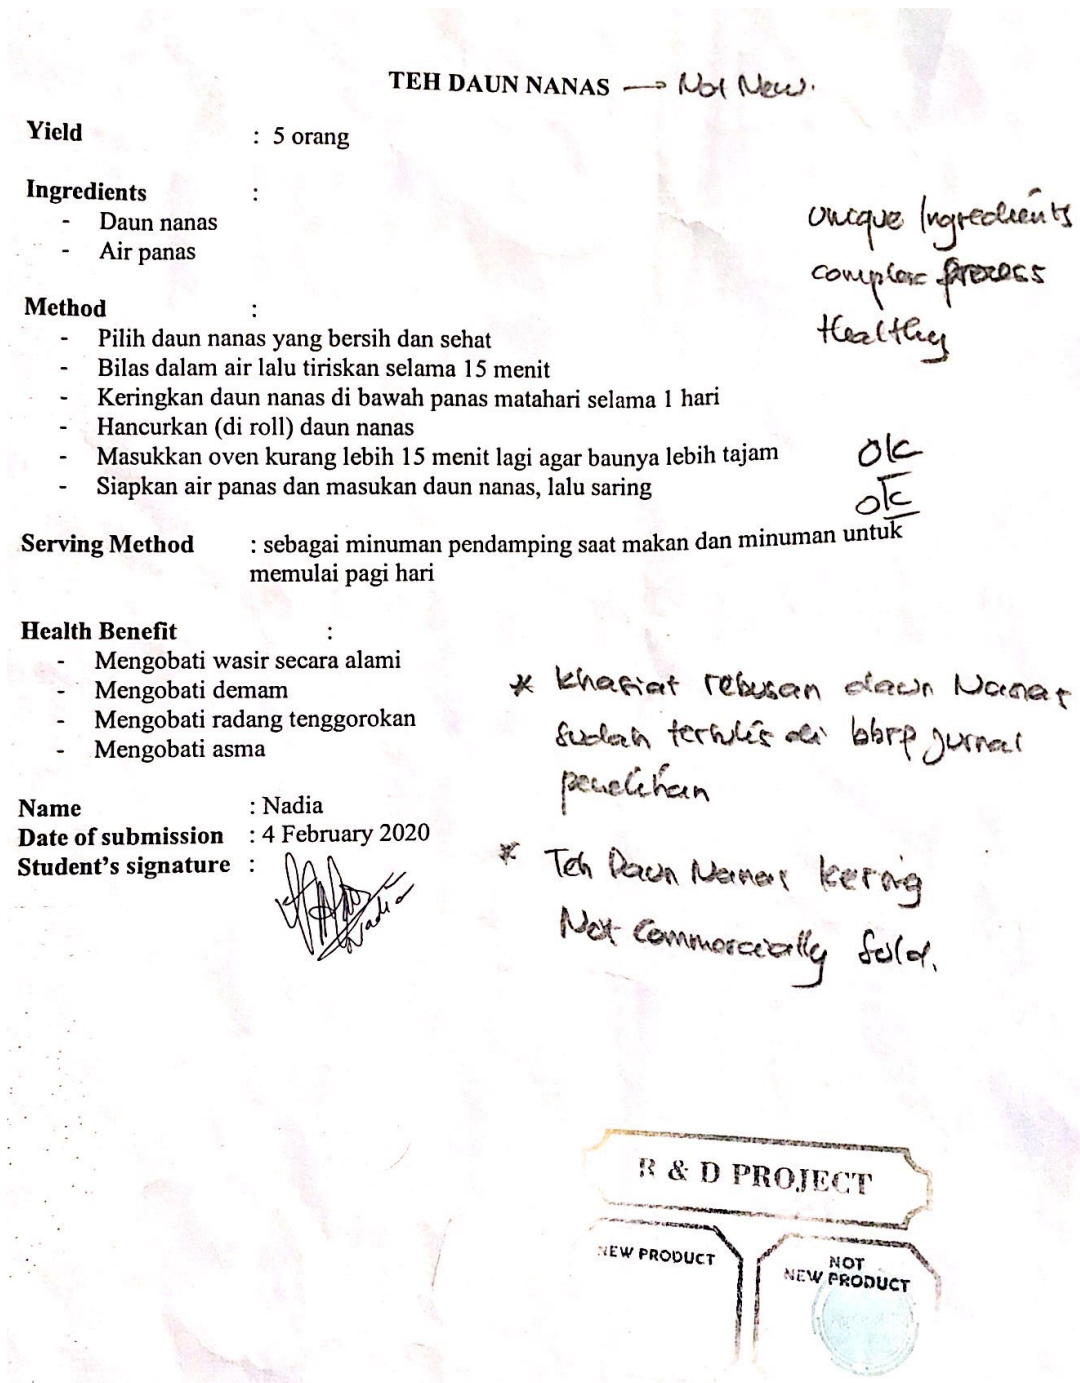 TEH DAUN NANAS → Not New.
Yield : 5 orang
Ingredients :
- Daun nanas
- Air panas
unique Ingredients
complex process
Healthy
Method :
- Pilih daun nanas yang bersih dan sehat
- Bilas dalam air lalu tiriskan selama 15 menit
- Keringkan daun nanas di bawah panas matahari selama 1 hari
- Hancurkan (di roll) daun nanas
- Masukkan oven kurang lebih 15 menit lagi agar baunya lebih tajam
- Siapkan air panas dan masukan daun nanas, lalu saring
ok
ok
Serving Method : sebagai minuman pendamping saat makan dan minuman untuk
memulai pagi hari
Health Benefit :
- Mengobati wasir secara alami
- Mengobati demam
- Mengobati radang tenggorokan
- Mengobati asma
* khasiat rebusan daun Nanas
sudah tertulis di bbrp jurnal
penelitian
Name : Nadia
Date of submission : 4 February 2020
Student's signature :
Nadia
* Teh Daun Nanas kering
Not Commercially Sold.
R & D PROJECT
NEW PRODUCT
NOT
NEW PRODUCT